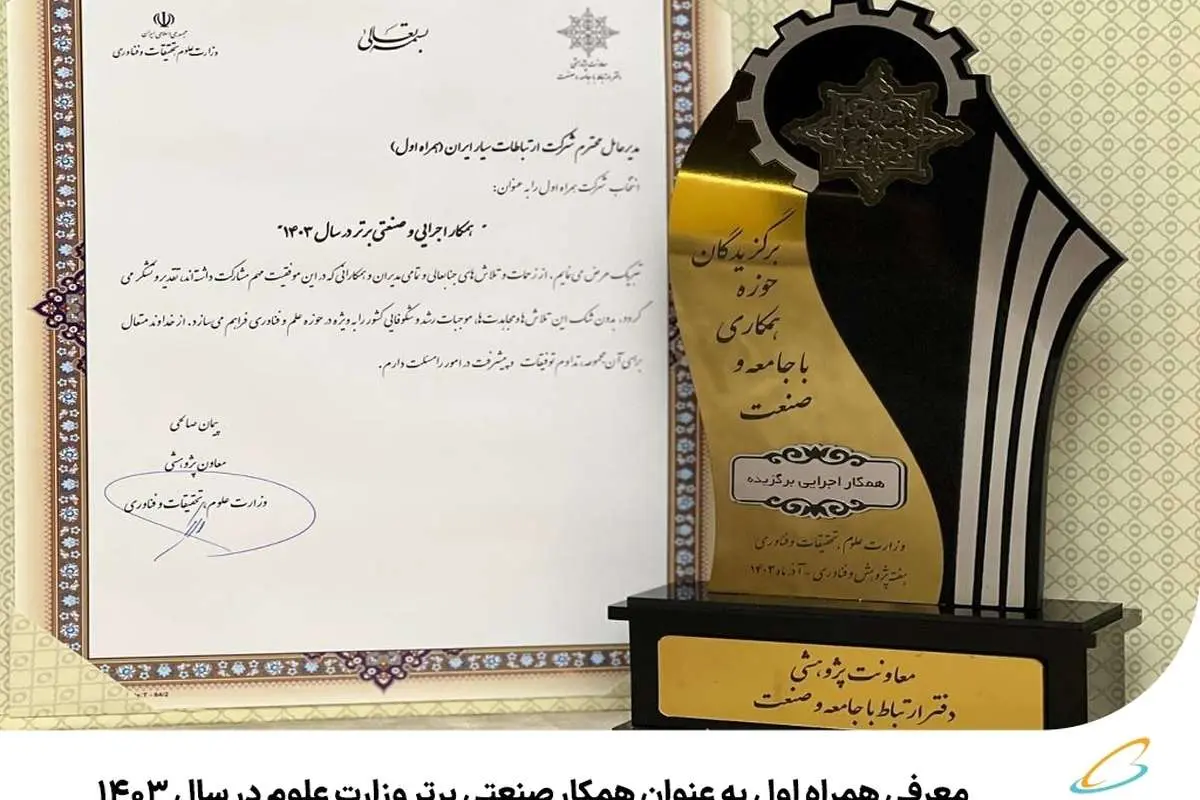 بسمه تعالی
جمهوری اسلامی ایران
وزارت علوم، تحقیقات و فناوری
معاونت پژوهشی
دفتر ارتباط با جامعه و صنعت
مدیرعامل محترم شرکت ارتباطات سیار ایران (همراه اول)
انتخاب شرکت همراه اول را به عنوان:
"همکار اجرایی و صنعتی برتر در سال ۱۴۰۳"
تبریک عرض می نمایم. از زحمات و تلاش های جنابعالی و تمامی مدیران و همکارانی که در این موفقیت مهم مشارکت داشته‌اند، تقدیر و تشکر می
گردد. بدون شک این تلاش ها و مجاهدت ها، موجبات رشد و شکوفایی کشور را به ویژه در حوزه علم و فناوری فراهم می سازد. از خداوند متعال
برای آن مجموعه، تداوم توفیقات و پیشرفت در امور را مسئلت دارم.
پیمان صالحی
معاون پژوهشی
وزارت علوم، تحقیقات و فناوری
برگزیدگان
حوزه
همکاری
با جامعه و
صنعت
همکار اجرایی برگزیده
وزارت علوم، تحقیقات و فناوری
هفته پژوهش و فناوری - آذر ماه ۱۴۰۳
معاونت پژوهشی
دفتر ارتباط با جامعه و صنعت
معرفی همراه اول به عنوان همکار صنعتی برتر وزارت علوم در سال ۱۴۰۳